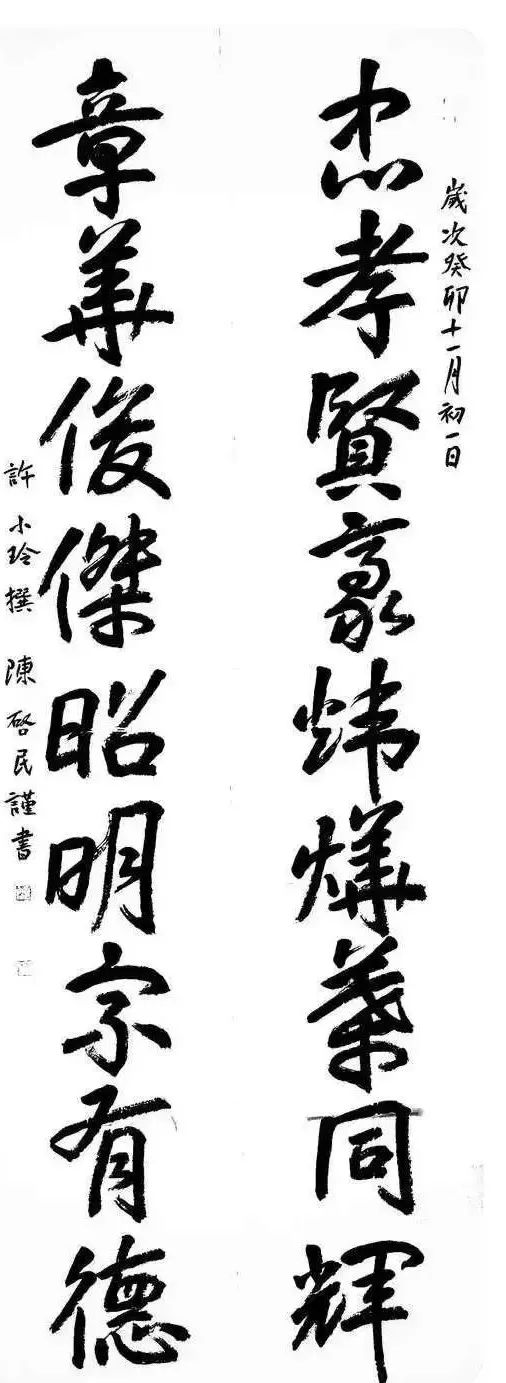 歲次癸卯十一月初一日
忠孝賢豪煒燁葉同輝
章華俊傑昭明宗有德
許小玲撰 陳啓民謹書